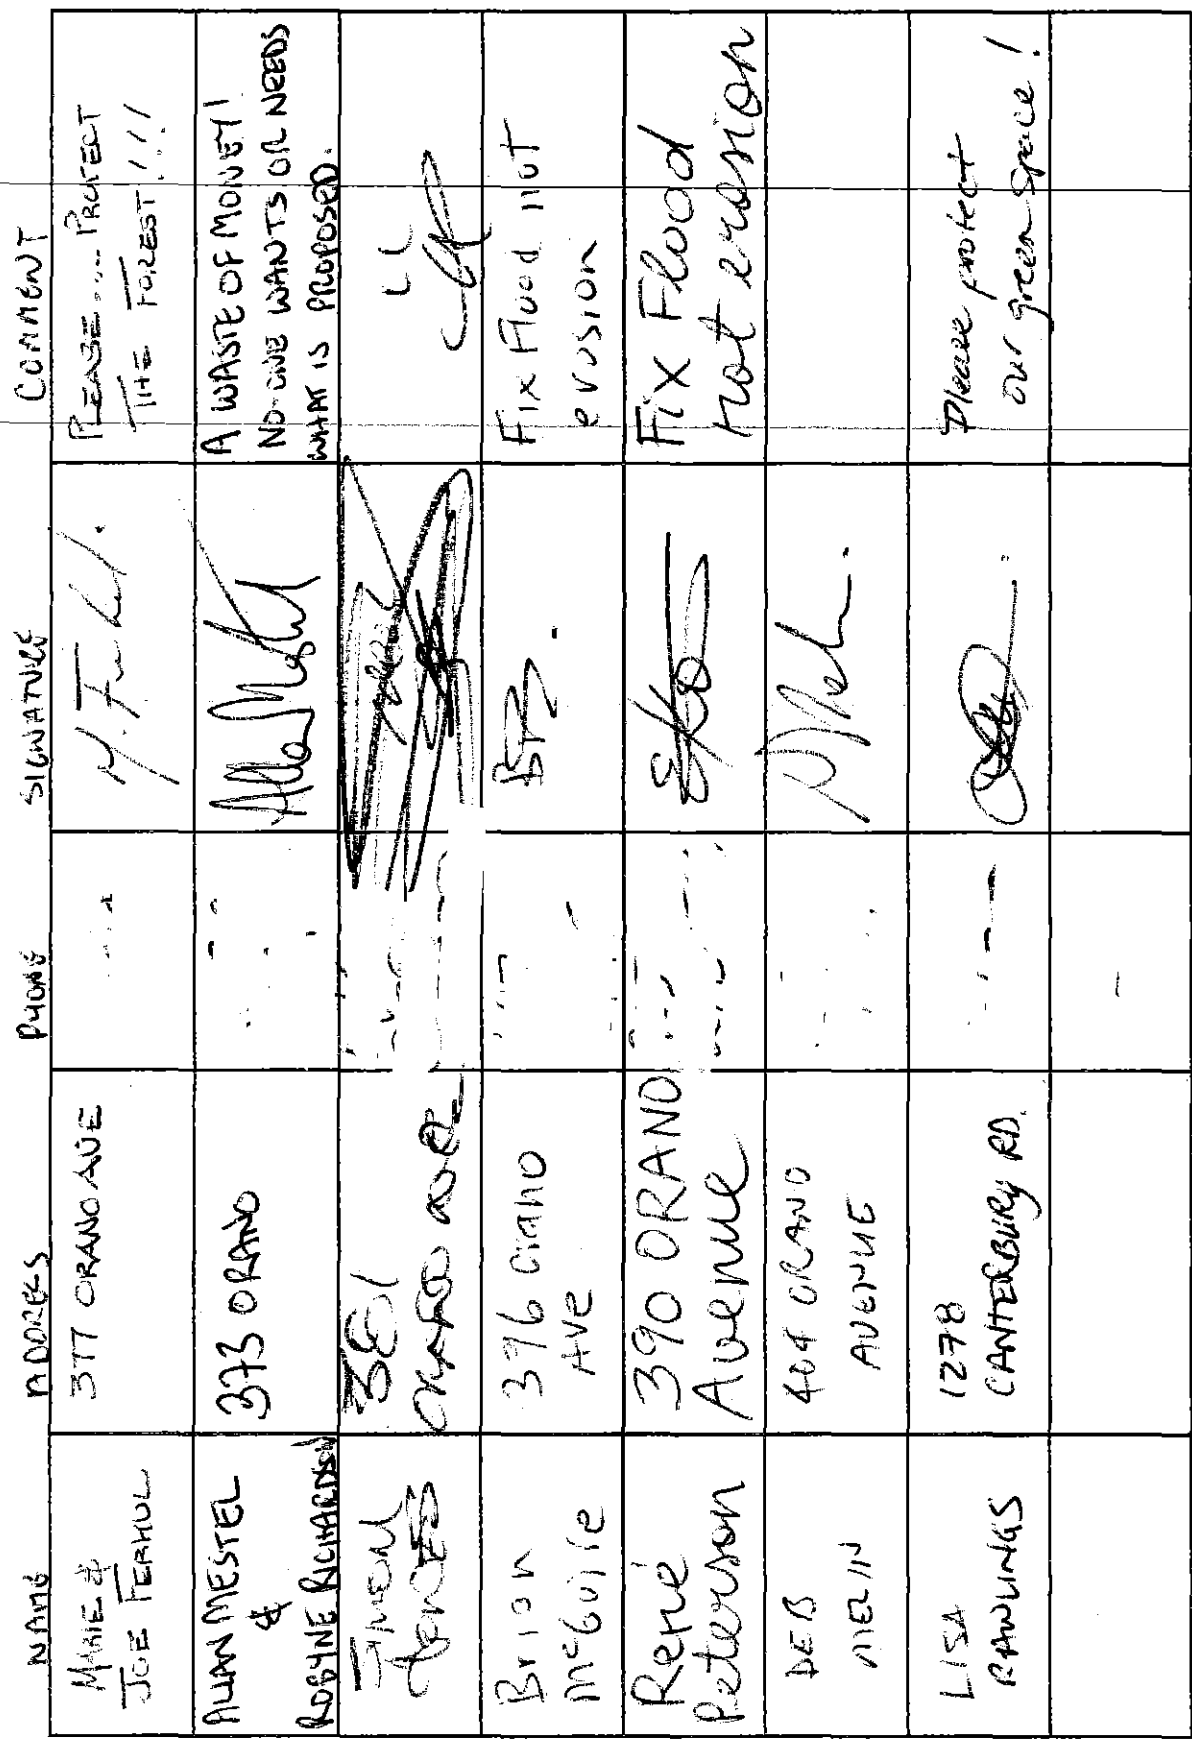 NAME ADDRESS PHONE SIGNATURE COMMENT
MARIE &
JOE FERHUL
377 ORANO AVE
M. Ferhul.
PLEASE.... PROTECT
THE FOREST!!!
ALLAN MESTEL
&
ROBYNE RICHARDSON
373 ORANO
A WASTE OF MONEY!
NO-ONE WANTS OR NEEDS
WHAT IS PROPOSED.
381
ORANO AVE
Brian
McGuire
396 Orano
Ave
Fix Flood not
erosion
René
Peterson
390 ORANO
Avenue
Fix Flood
not erosion
DEB
MERLIN
404 ORANO
AVENUE
LISA
RAWLINGS
1278
CANTERBURY RD.
Please protect
our green space!